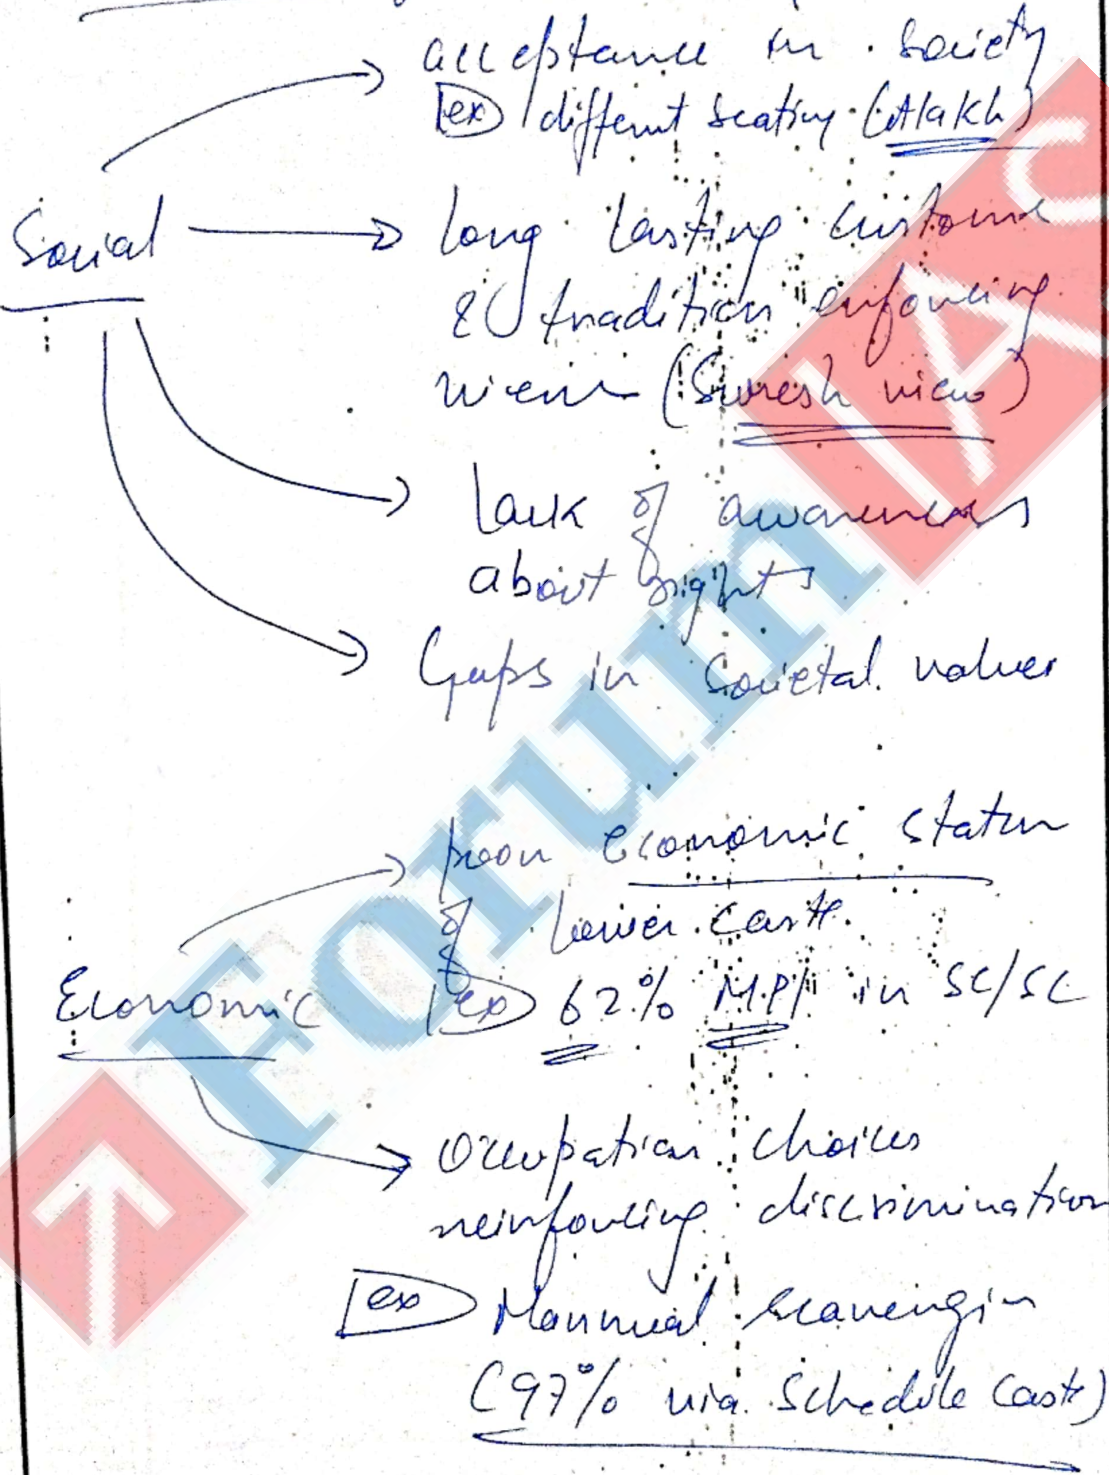 acceptance in society
ex different seating (Alakh)
Social
long lasting customs
& tradition enforcing
views (Suresh view)
lack of awareness
about rights
Gaps in societal values
poor economic status
of lower caste.
Economic
ex 62% MPI in SC/SC
Occupation choices
reinforcing discrimination
ex Mannual scavengin
(97% via Schedule Caste)
Forum IAS